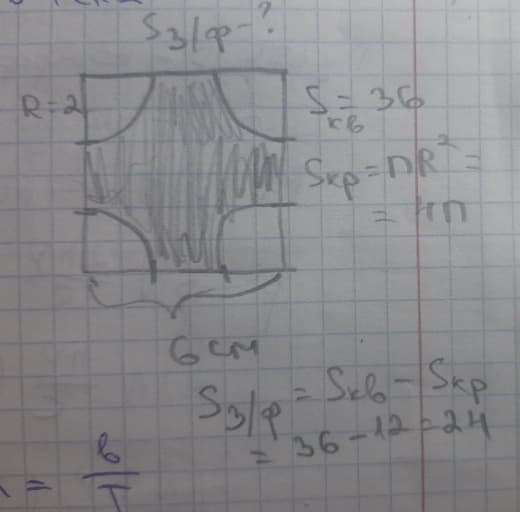 S з/ф - ?
R = 2
Sкв = 36
Sкр = ПR² =
= 4П
6 см
S з/ф = Sкв - Sкр
= 36 - 12 = 24
= в/T